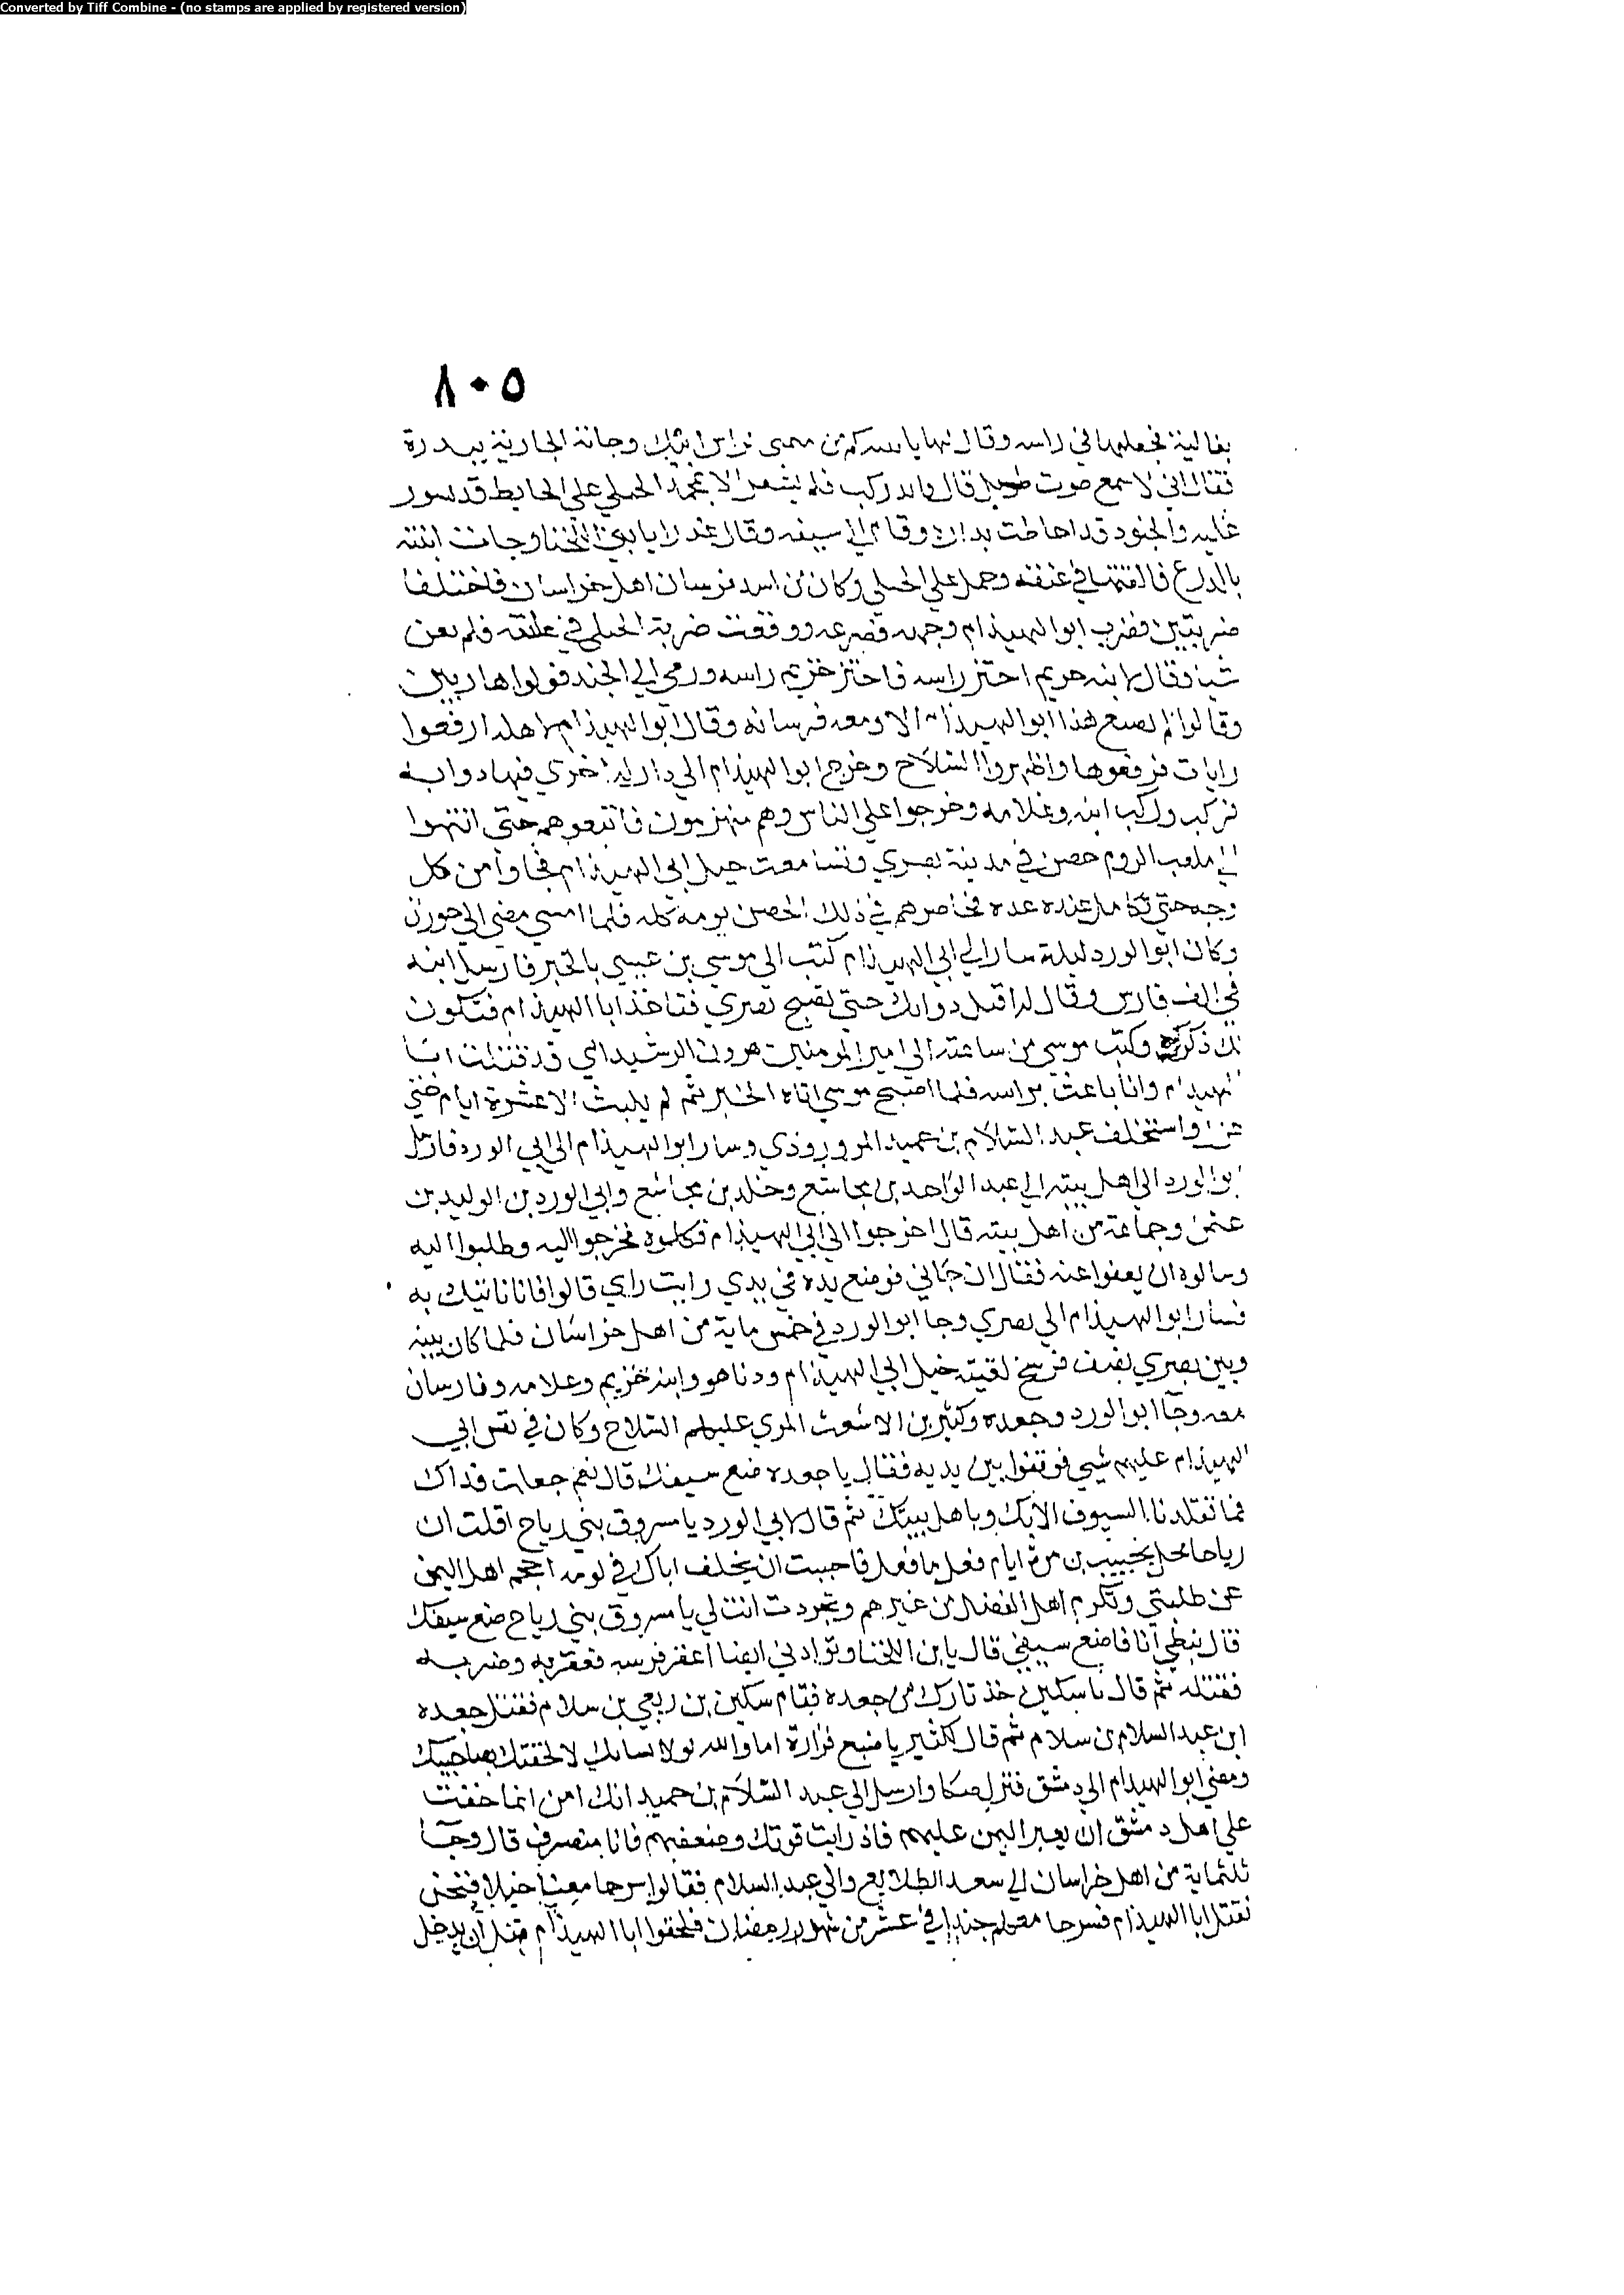 Converted by Tiff Combine - (no stamps are applied by registered version)
٨٠٥
بغالية فجعلها في راسه وقال لها يا كم من راس وجاته الجارية
فقال اني لاسمع صوت قال والله ركب فلم يشعر الا بمحمد الحملي على الحايط قد سور
عليه والجنود قد احاطت بداره وقام الى سيفه وقال غدرا يا بني اللخنا وجات ابنته
بالدرع فالقتها في عنقه وحمل على الحملي وكان من اسد فرسان اهل خراسان فاختلفا
ضربتين فضرب ابو الهيذام وجهه فصرعه ووقعت ضربة الحملي في عاتقه فلم تغن
شيا فقال لابنه خريم احتز راسه فاحتز خزيم راسه ورمى الى الجند فولوا هاربين
وقالوا لم يصنع هذا ابو الهيذام الا ومعه فرسانه وقال ابو الهيذام لاهله ارفعوا
رايات فرفعوها واظهروا السلاح وخرج ابو الهيذام الى دار له اخرى فيها دوابه
فركب وركب ابنه وغلامه وخرجوا على الناس وهم منهزمون فاتبعوهم حتى انتهوا
الى ملعب الروم حصن في مدينة بصري وتسامعت خيل ابي الهيذام فجاوا من كل
وجه حتى تكامل عنده عده فحاصرهم في ذلك الحصن يومه كله فلما امسي مضى الى حوران
وكان ابو الورد ليلة سار الى ابي الهيذام كتب الى موسى بن عيسي بالخبر فارسل ابنه
في الف فارس وقال له اقبل دوابك حتى تصبح بصري فتاخذ ابا الهيذام فتكون
لك ذكره وكتب موسى من ساعته الى امير المومنين هرون الرشيد اني قد قتلت ابا
الهيذام وانا باعث براسه فلما اصبح موسى اتاه الخبر ثم لم يلبث الا عشرة ايام حتى
عزل واستخلف عبد السلام بن حميد المروروذي وسار ابو الهيذام الى ابي الورد فارسل
ابو الورد الى اهل بيته الى عبد الواحد بن مجاشع وخلد بن مجاشع وابي الورد بن الوليد بن
عثمن وجماعة من اهل بيته قال اخرجوا الى ابي الهيذام فكلموه فخرجوا اليه وطلبوا اليه
وسالوه ان يعفوا عنه فقال ان جاني فوضع يده في يدي رايت رايي قالوا فانا ناتيك به
فسار ابو الهيذام الى بصري وجا ابو الورد في خمس ماية من اهل خراسان فلما كان بينه
وبين بصري نصف فرسخ لقيته خيل ابي الهيذام ودنا هو وابنه خزيم وغلامه وفارسان
معه وجا ابو الورد وجعده وكثير بن الاشعث المري عليهم السلاح وكان في نفس ابي
الهيذام عليهم شي فوقفوا بين يديه فقال يا جعده ضع سيفك قال نعم جعلت فداك
فما تقلدنا السيوف الا بك وباهل بيتك ثم قال لابي الورد يا مسروق بني رياح اقلت ان
رياحا بحبيب بن مرة ايام فعل ما فعل فاحببت ان يخلف اباك في لومه احجم اهل اليمن
عن طلبتي وتكرم اهل الفضل من غيرهم وتجردت انت لي يا مسروق بني رياح ضع سيفك
قال نبطي انا فاضع سيفي قال يا بن اللخنا وتوادني ايضا اعقر فرسه فعقر به وضربه
فقتله ثم قال يا سكين خذ تارك من جعده فقام سكين بن ربعي بن سلام فقتل جعده
ابن عبد السلام بن سلام ثم قال لكثير يا ضبع فزارة اما والله لولا لسانك لالحقتك بصاحبيك
ومضى ابو الهيدام الى دمشق فنزل وارسل الى عبد السلام بن حميد انك امن انما خفت
على اهل دمشق ان يعبر اليمن عليهم فاذ رايت قوتك وضعفهم فانا منصرف قال وجا
ثلثماية من اهل خراسان الى سعد الطلايع والي عبد السلام فقالوا سرحا معنا خيلا فنحن
نقتل ابا الهيذام فسرحا معهم جندا في عشر من شهر رمضان فلحقوا ابا الهيذام قبل ان يدخل